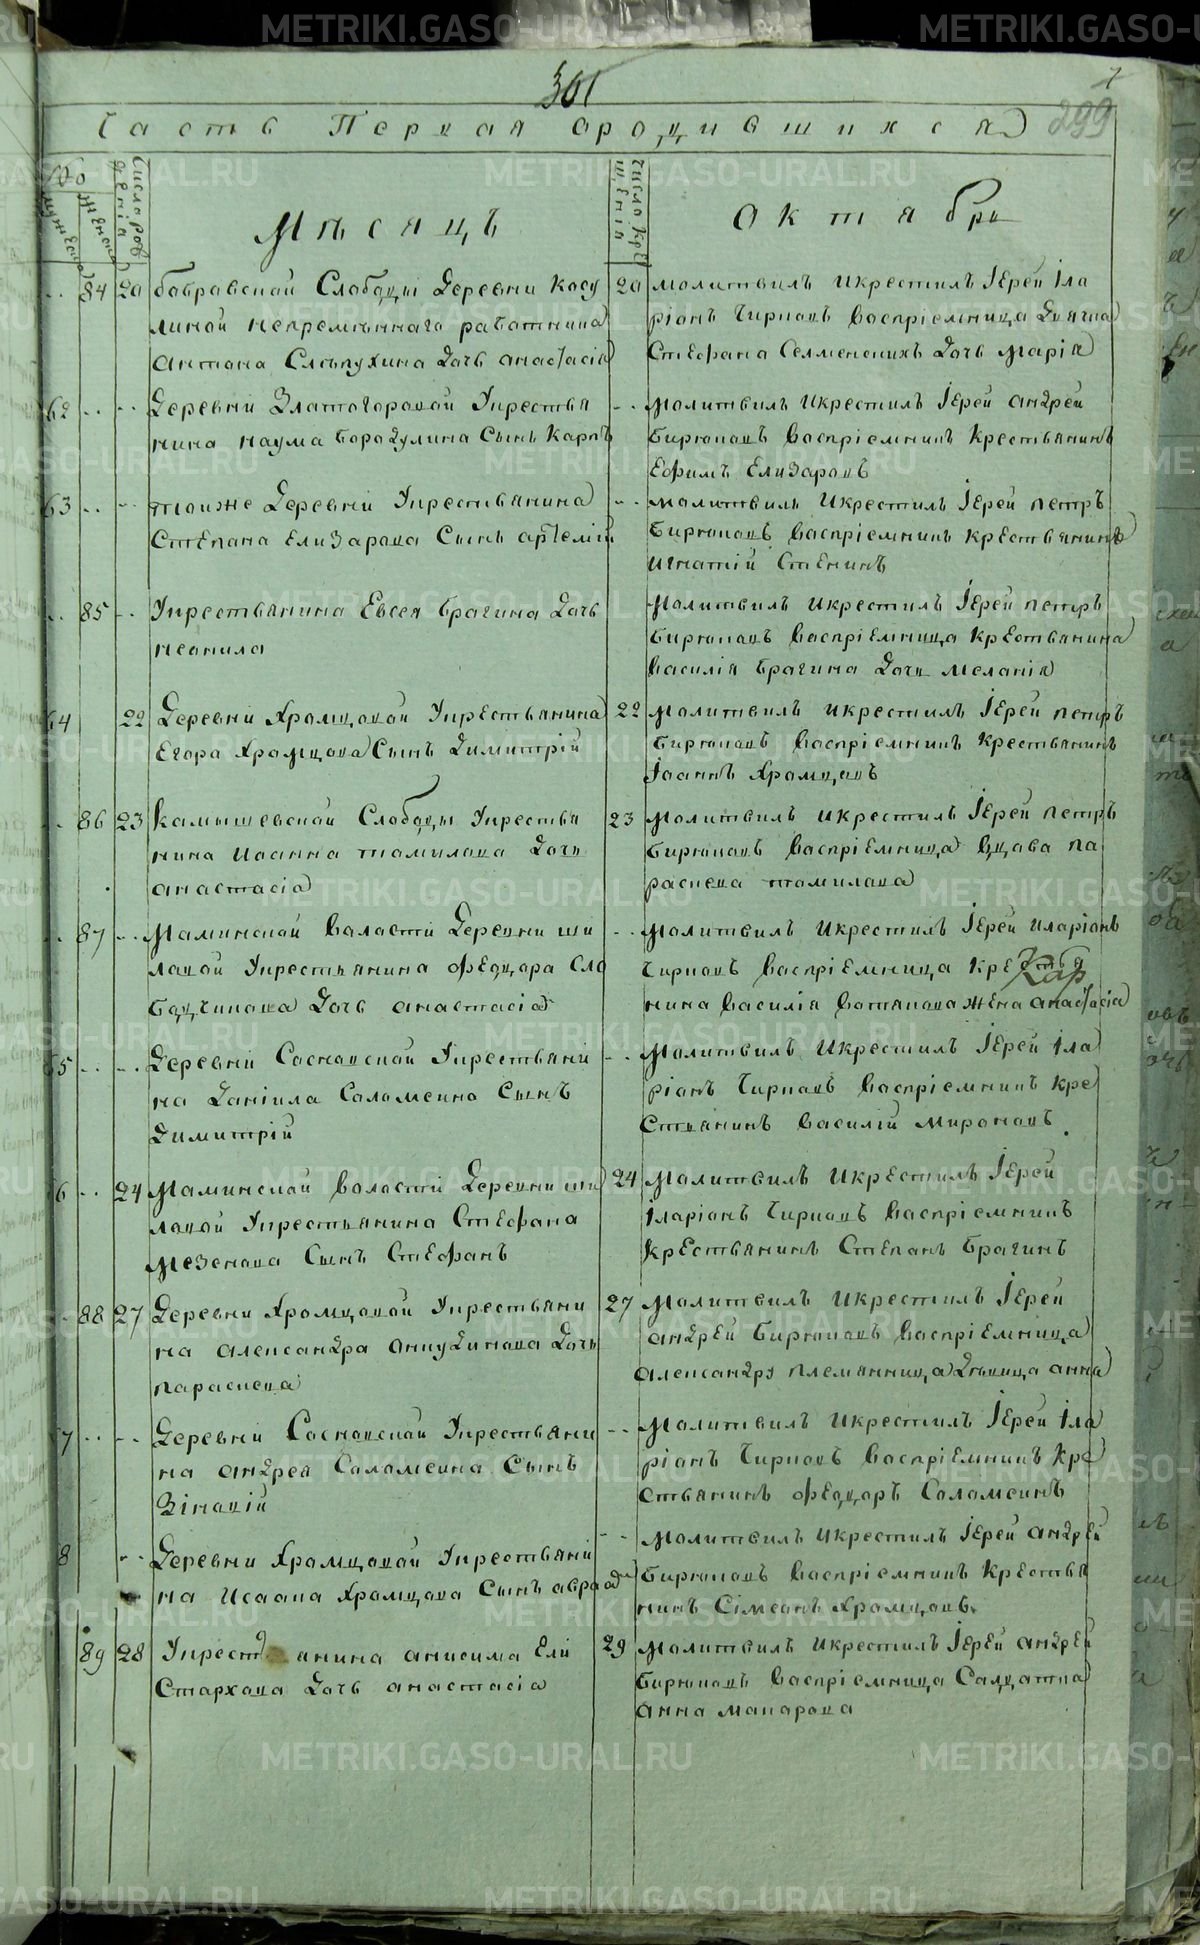 301
299
Часть Первая ородившихся
Число рождения
мужеска
женска
Месяцъ
Число крещения
октября
84 20 бобравской Слободы Деревни Косу
линой непременнаго работника
антона Слепухина Дочь анастасiя
20 молитвилъ икрестилъ Iерей Iла
рiонъ Чирковъ Васпрiемница Дьячка
Стефана Селменскихъ Дочь Марiя
62 Деревни Златогоровой Укрестья
нина наума бородулина Сынъ Карпъ
Молитвилъ икрестилъ Iерей андрей
бирюковъ Васпрiемникъ крестьянинъ
Ефимъ Елизаровъ
63 тоиже Деревни Укрестьянина
Степана Елизарова Сынъ артемiй
молитвилъ икрестилъ Iерей петръ
бирюковъ Васпрiемникъ крестьянинъ
игнатiй Стенинъ
85 Укрестьянина Евсея брагина Дочь
неонила
Молитвилъ икрестилъ Iерей петръ
бирюковъ Васпрiемница крестьянина
Василiя брагина Дочь меланiя
64 22 Деревни Храмцовой Укрестьянина
Егора Храмцова Сынъ Димитрiй
22 Молитвилъ икрестилъ Iерей петръ
бирюковъ Васпрiемникъ крестьянинъ
Iоаннъ Храмцовъ
86 23 Камышевской Слободы Укрестья
нина Иоанна томилова Дочь
анастасiя
23 Молитвилъ икрестилъ Iерей петръ
бирюковъ Васпрiемница Вдова па
раскева томилова
87 Маминской Воласти Деревни ши
ловой Укрестьянина федора Сло
бодчикова Дочь анастасiя
Молитвилъ икрестилъ Iерей иларiонъ
Чирковъ Васпрiемница крестья
нина Василiя Вотякова жена анастасiя
65 Деревни Сосновской Укрестьяни
на Данiила Саламеина Сынъ
Димитрiй
Молитвилъ икрестилъ Iерей Iла
рiонъ Чирковъ Васпрiемникъ кре
стьянинъ Василiй мироновъ
6 24 Маминской Воласти Деревни ши
ловой Укрестьянина Стефана
мезенова Сынъ Стефанъ
24 Молитвилъ икрестилъ Iерей
Iларiонъ Чирковъ Васпрiемникъ
крестьянинъ Степанъ брагинъ
88 27 Деревни Храмцовой Укрестьяни
на александра анкудинова Дочь
параскева
27 Молитвилъ икрестилъ Iерей
андрей бирюковъ Васпрiемница
александру племянница Девица анна
7 Деревни Сосновской Укрестьяни
на андрея Саламеина Сынъ
Зiновiй
Молитвилъ икрестилъ Iерей Iла
рiонъ Чирковъ Васпрiемникъ кре
стьянинъ федоръ Саламеинъ
8 Деревни Храмцовой Укрестьяни
на Исаака Храмцова Сынъ авраам
Молитвилъ икрестилъ Iерей андрей
бирюковъ Васпрiемникъ крестья
нинъ Сiмеонъ Храмцовъ
89 28 Укрестьянина анисима Ели
стархова Дочь анастасiя
29 Молитвилъ икрестилъ Iерей андрей
бирюковъ Васпрiемница Салдатка
анна макарова